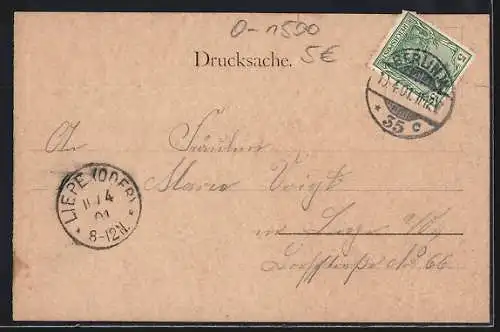 0-1500
5€
Drucksache.
BERLIN
13.4.01. 11-12V
* 35 c
An Fräulein
Marie Voigt
in
Dorfstraße No 66
LIEPE (ODER)
4
01
8-12N.